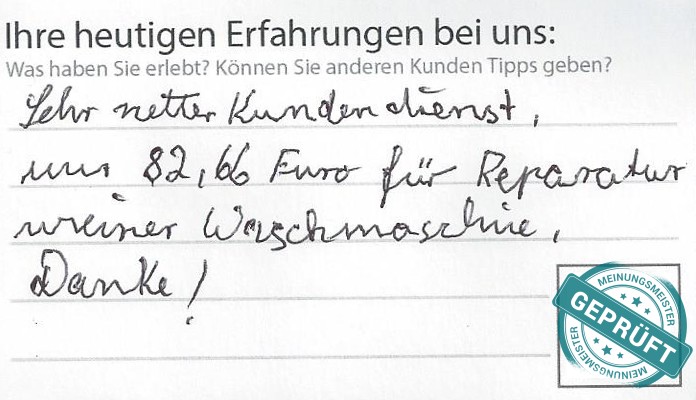 Ihre heutigen Erfahrungen bei uns:
Was haben Sie erlebt? Können Sie anderen Kunden Tipps geben?
Sehr netter Kundendienst,
nur 82,66 Euro für Reparatur
meiner Waschmaschine,
Danke!
MEINUNGSMEISTER
GEPRÜFT
MEINUNGSMEISTER